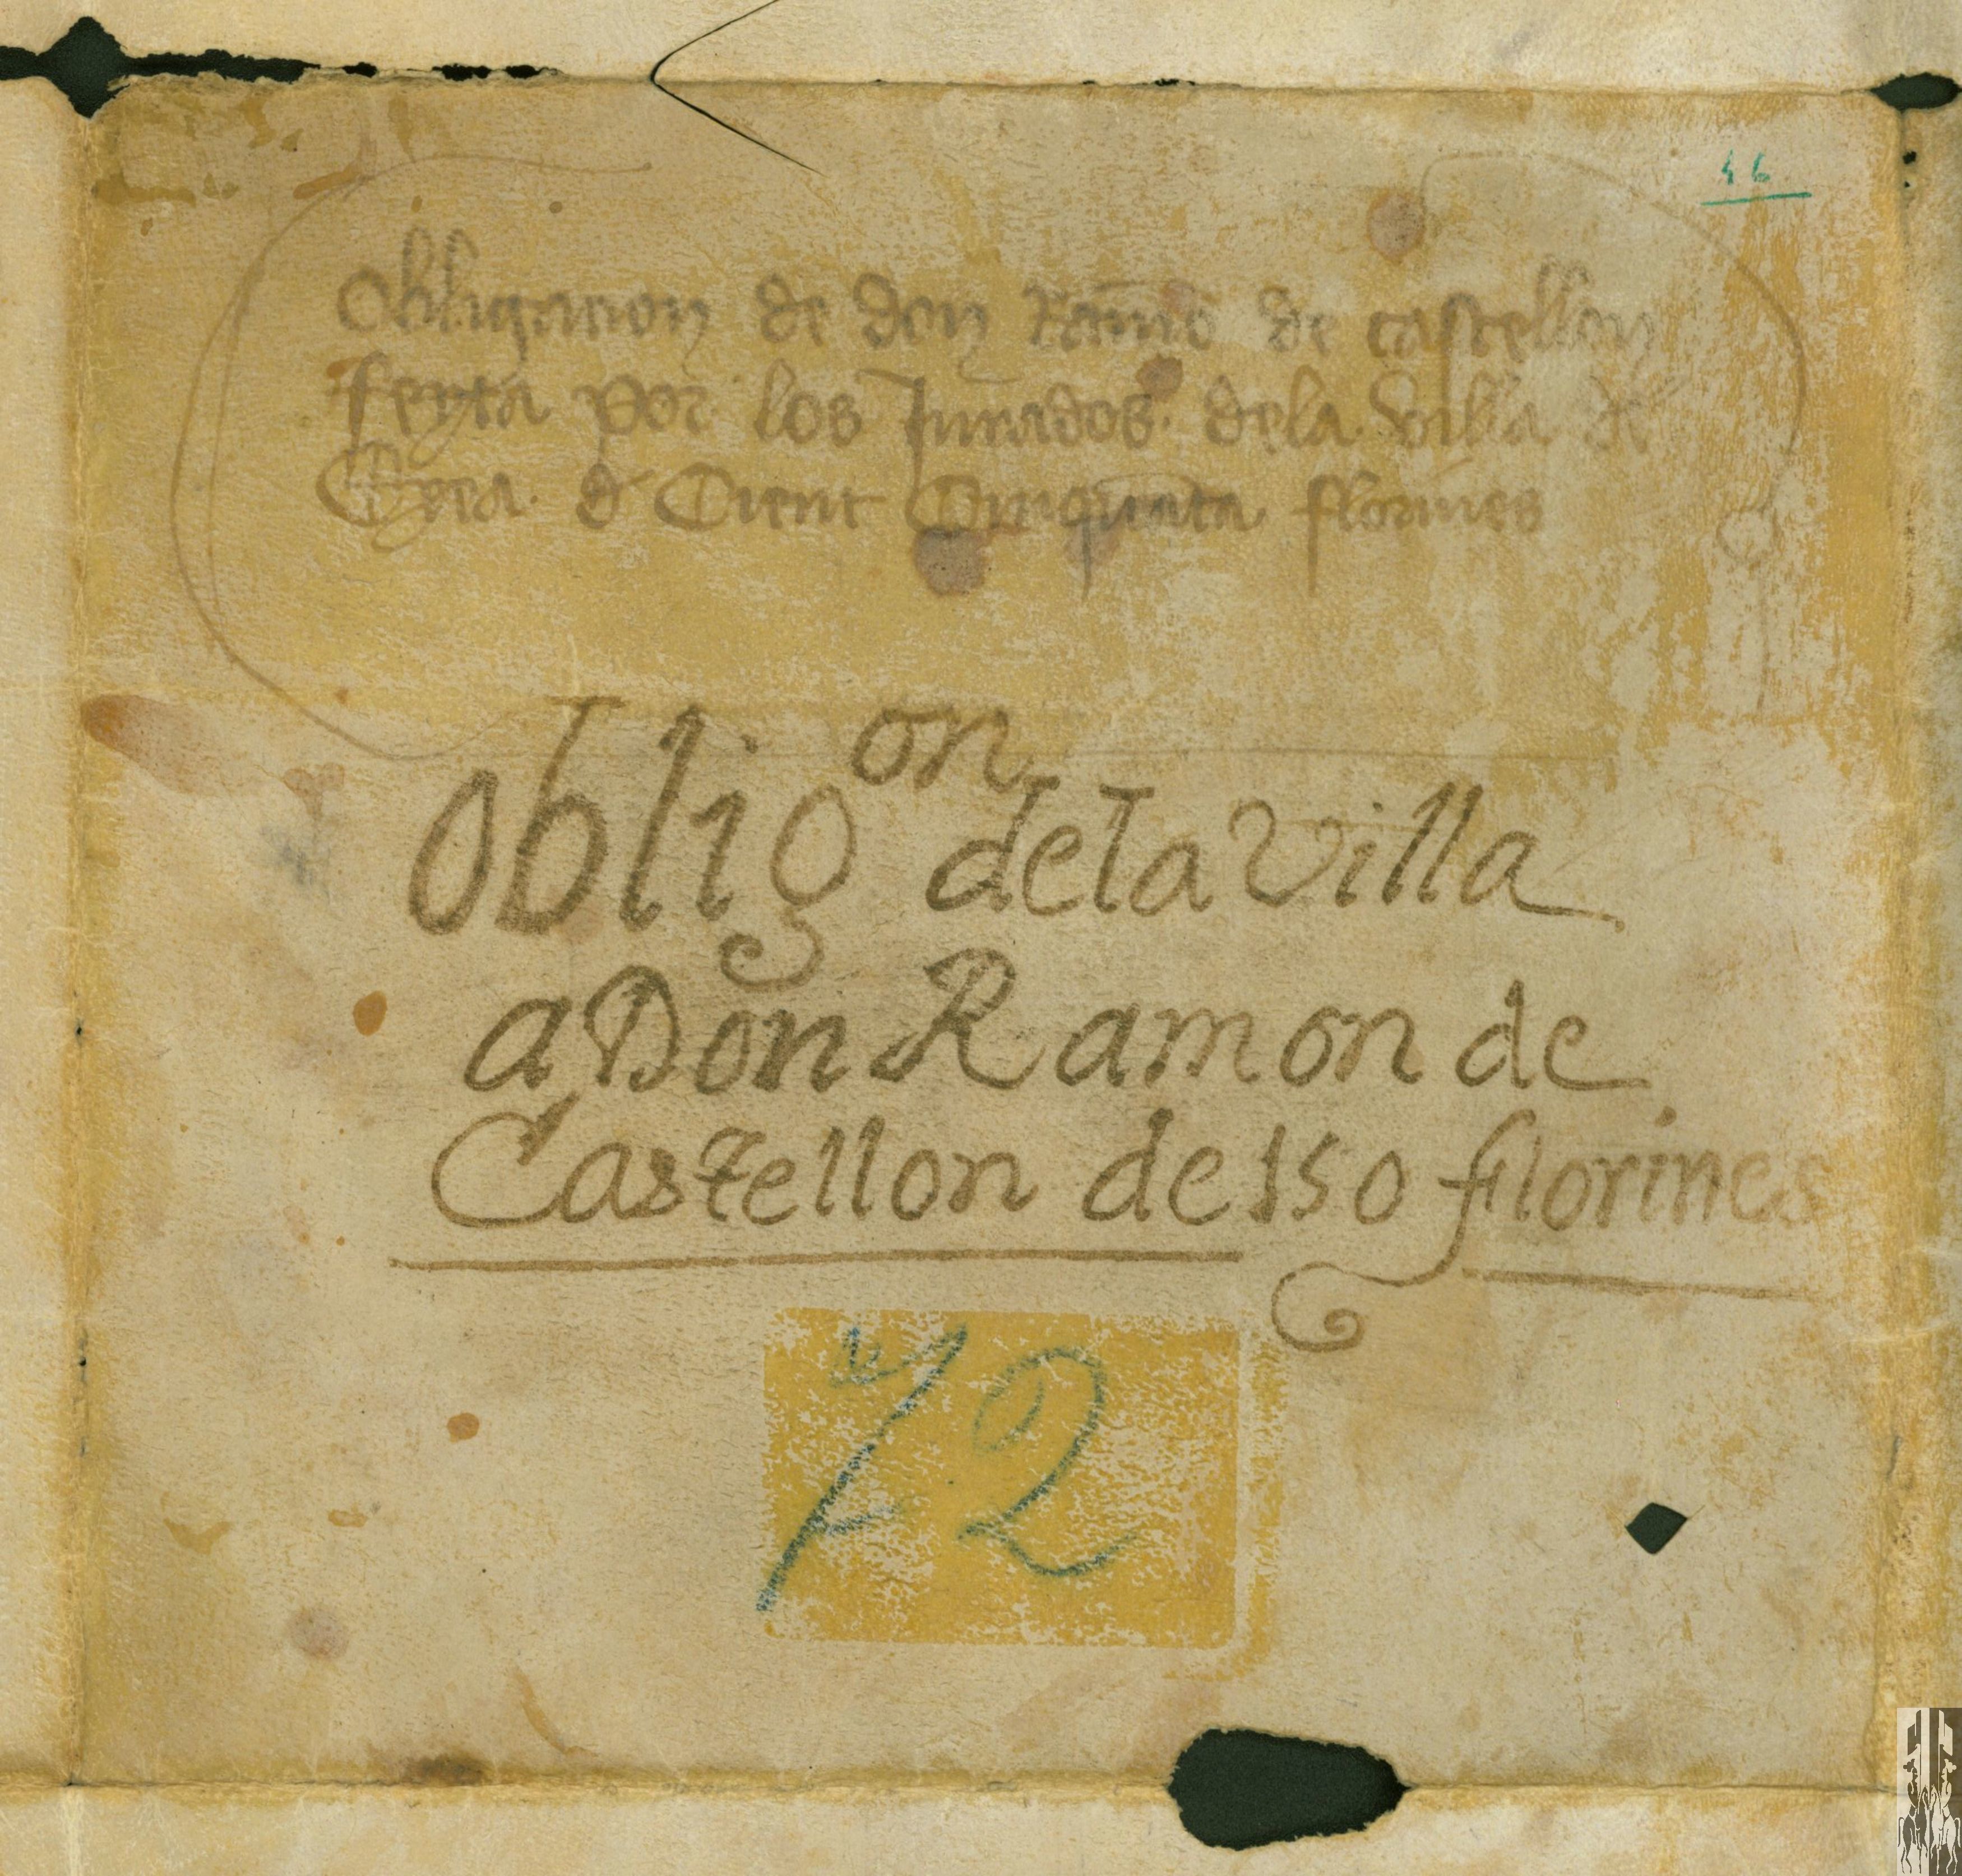 46
Obligacion de don Ramo de castellon
feyta por los Jurados. dela. villa de
Exea. d Cient Cinquata florines
obligon dela villa
a Don Ramon de
Castellon de 150 florines
72